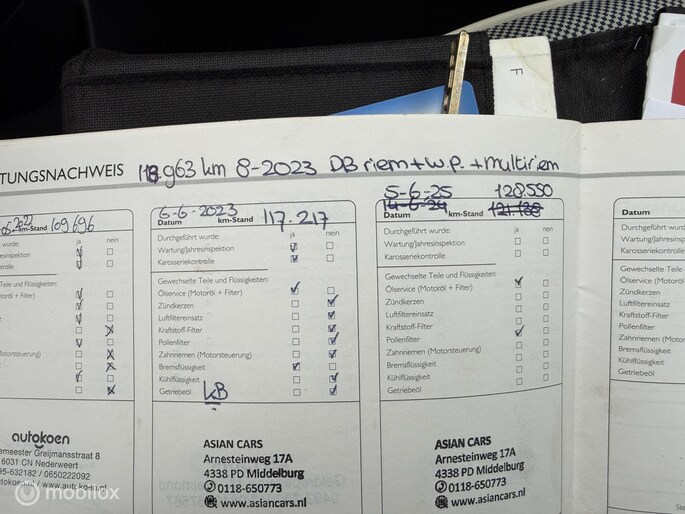 TUNGSNACHWEIS 118.963 km 8-2023 DB riem + w.p. + multiriem
2022 km-Stand 109696
ja nein
t wurde:
resinspektion
ntrolle
Teile und Flüssigkeiten:
otoröl + Filter)
satz
ter
Motorsteuerung)
t
it
autokoen
emeester Greijmansstraat 8
6031 CN Nederweert
95-632182 / 0650222092
tokoen.nl / www.autokoen.nl
6-6-2023 117.217
Datum km-Stand
Durchgeführt wurde: ja nein
Wartung/Jahresinspektion
Karosseriekontrolle
Gewechselte Teile und Flüssigkeiten:
Ölservice (Motoröl + Filter)
Zündkerzen
Luftfiltereinsatz
Kraftstoff-Filter
Pollenfilter
Zahnriemen (Motorsteuerung)
Bremsflüssigkeit
Kühlflüssigkeit
Getriebeöl
KB
ASIAN CARS
Arnesteinweg 17A
4338 PD Middelburg
0118-650773
www.asiancars.nl
5-6-25 128.550
14-6-24 121.188
Datum km-Stand
Durchgeführt wurde: ja nein
Wartung/Jahresinspektion
Karosseriekontrolle
Gewechselte Teile und Flüssigkeiten:
Ölservice (Motoröl + Filter)
Zündkerzen
Luftfiltereinsatz
Kraftstoff-Filter
Pollenfilter
Zahnriemen (Motorsteuerung)
Bremsflüssigkeit
Kühlflüssigkeit
Getriebeöl
ASIAN CARS
Arnesteinweg 17A
4338 PD Middelburg
0118-650773
www.asiancars.nl
Datum
Durchgeführt
Wartung/Jahr
Karosserieko
Gewechselte
Ölservice (M
Zündkerzen
Luftfilterein
Kraftstoff-F
Pollenfilter
Zahnriemen
Bremsflüssi
Kühlflüssig
Getriebeöl
Ste
F
mobilox